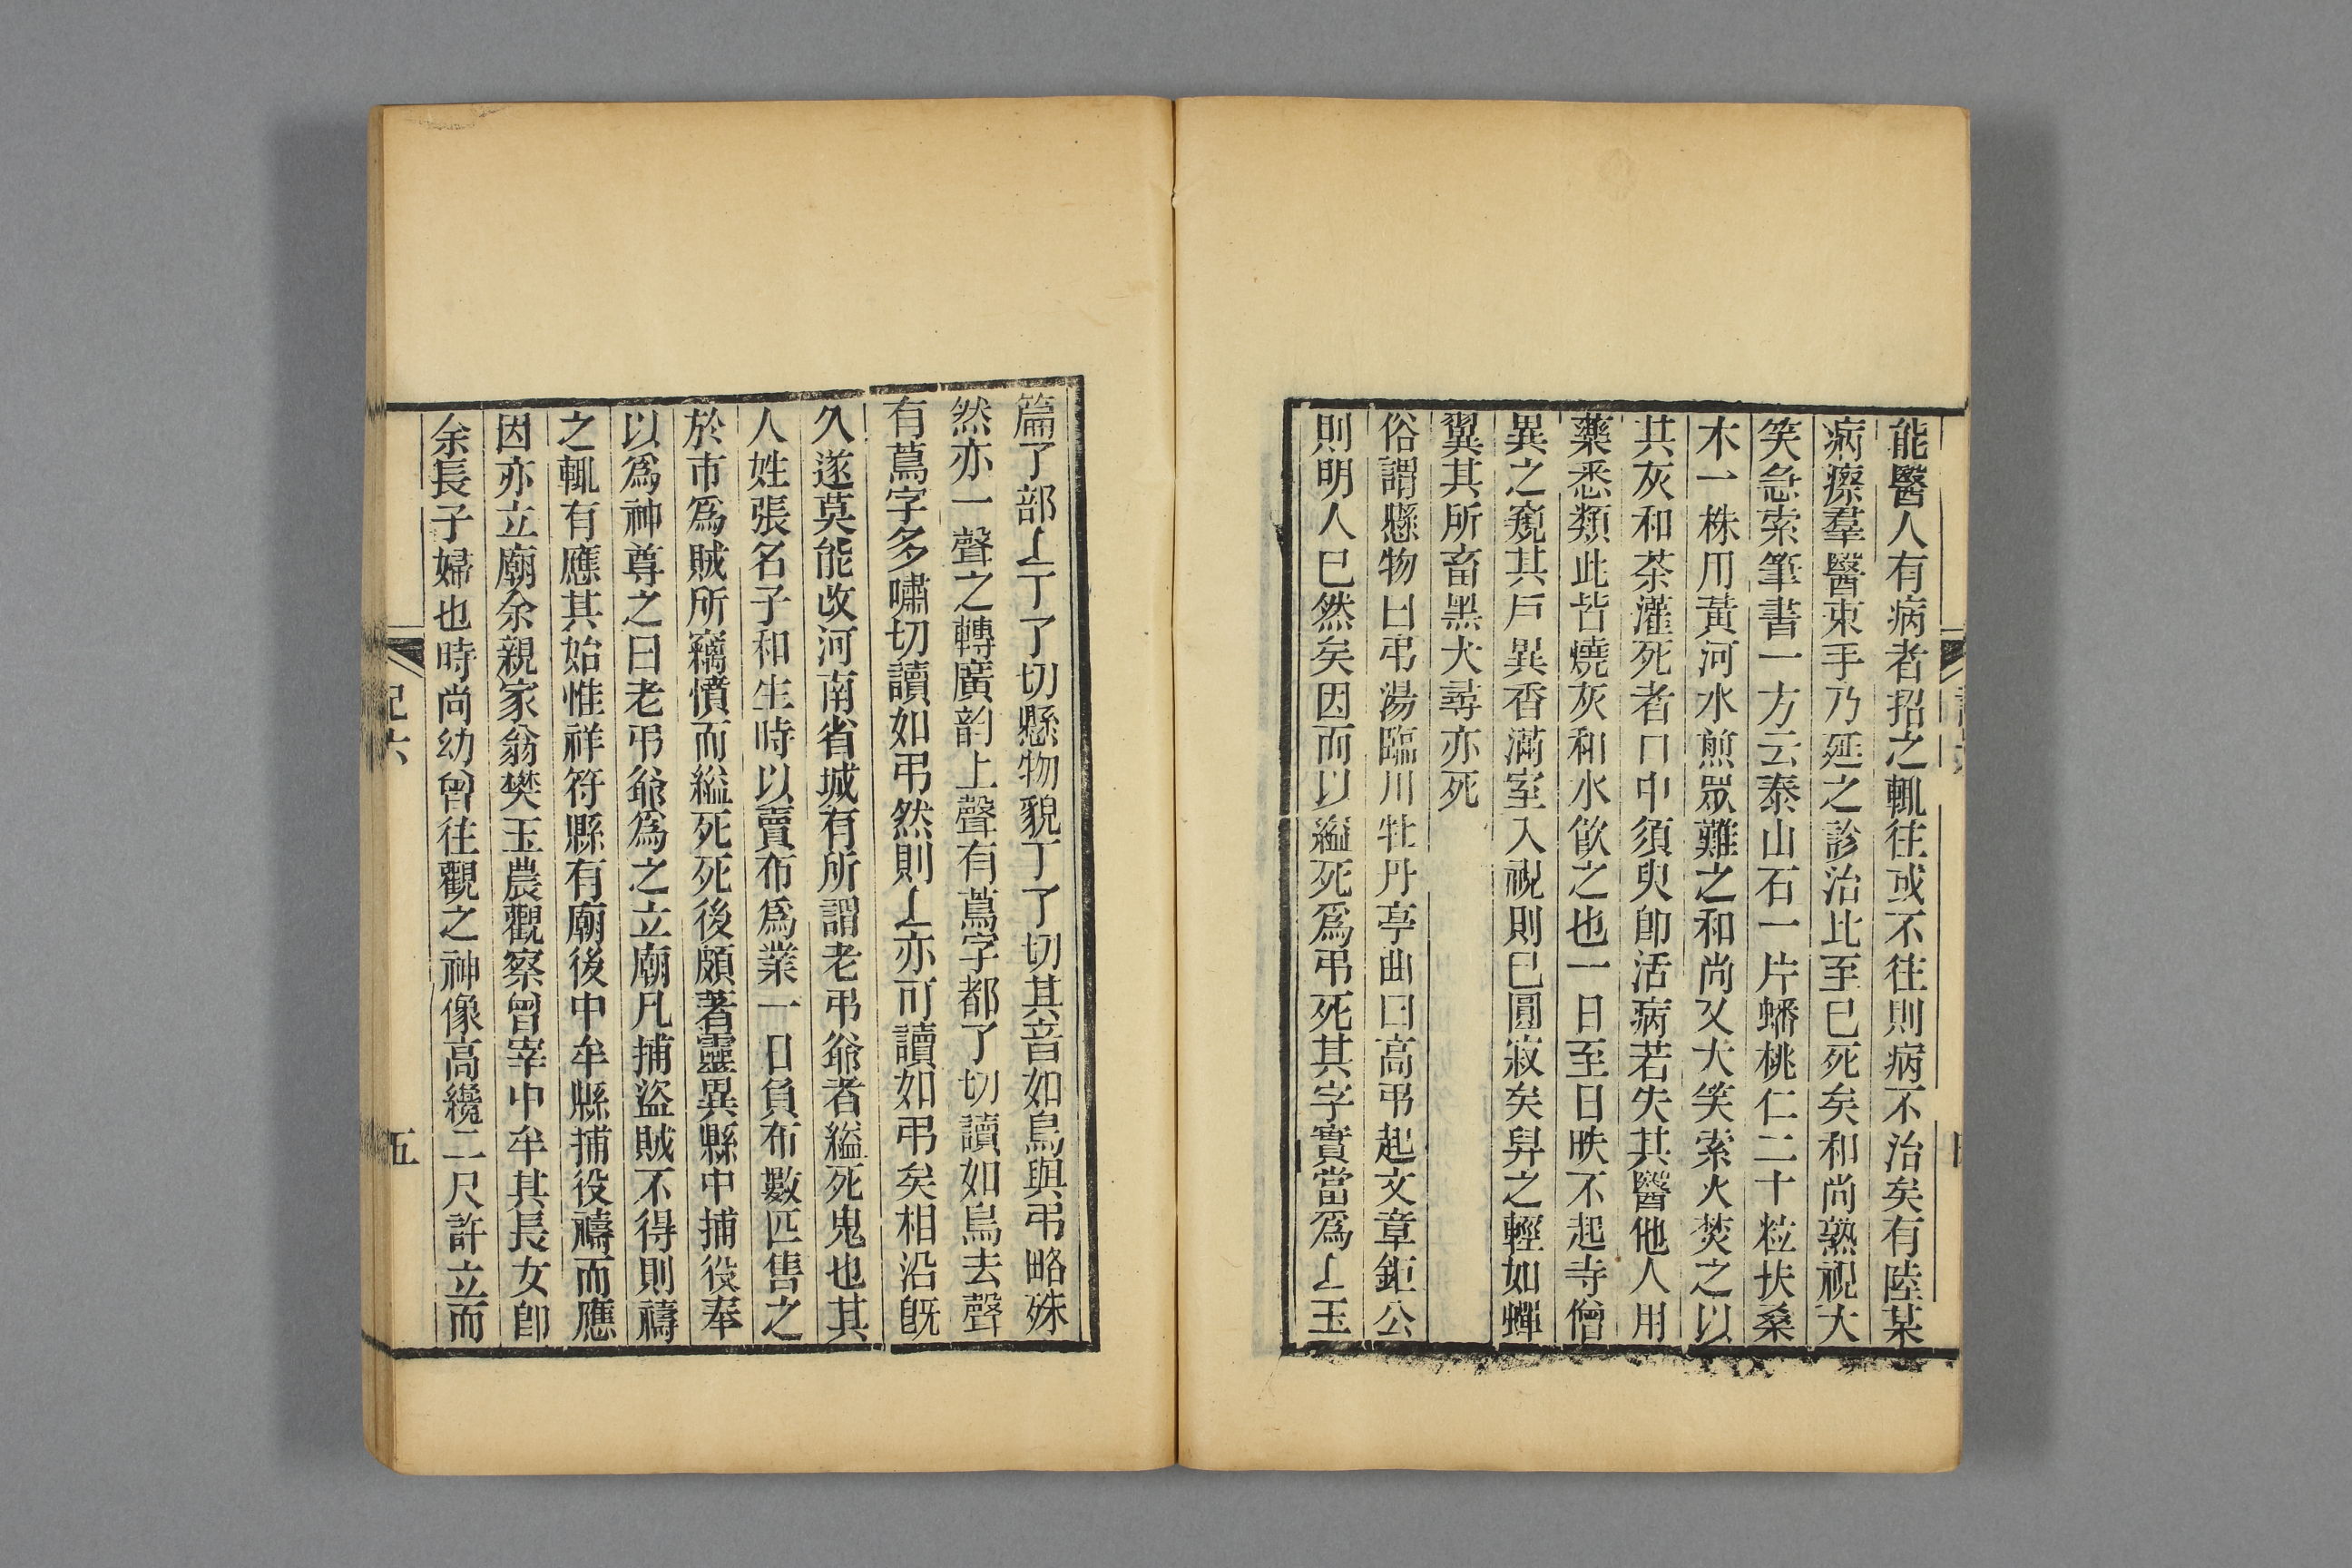 能醫人有病者招之輒往或不往則病不治矣有陸某
病瘵羣醫束手乃延之診治比至巳死矣和尚熟視大
笑急索筆書一方云泰山石一片蟠桃仁二十粒扶桑
木一株用黃河水煎眾難之和尚又大笑索火焚之以
其灰和茶灌死者口中須臾卽活病若失其醫他人用
藥悉類此皆燒灰和水飮之也一日至日昳不起寺僧
異之窺其戶異香滿室入視則巳圓寂矣舁之輕如蟬
翼其所畜黑犬尋亦死
俗謂懸物曰弔湯臨川牡丹亭曲曰高弔起文章鉅公
則明人巳然矣因而以縊死爲弔死其字實當爲𠄌玉
篇了部𠄌丁了切懸物貌丁了切其音如鳥與弔略殊
然亦一聲之轉廣韵上聲有蔦字都了切讀如鳥去聲
有蔦字多嘯切讀如弔然則𠄌亦可讀如弔矣相沿旣
久遂莫能改河南省城有所謂老弔爺者縊死鬼也其
人姓張名子和生時以賣布爲業一日負布數匹售之
於市爲賊所竊憤而縊死死後頗著靈異縣中捕役奉
以爲神尊之曰老弔爺爲之立廟凡捕盜賊不得則禱
之輒有應其始惟祥符縣有廟後中牟縣捕役禱而應
因亦立廟余親家翁樊玉農觀察曾宰中牟其長女卽
余長子婦也時尚幼曾往觀之神像高纔二尺許立而
記六
五